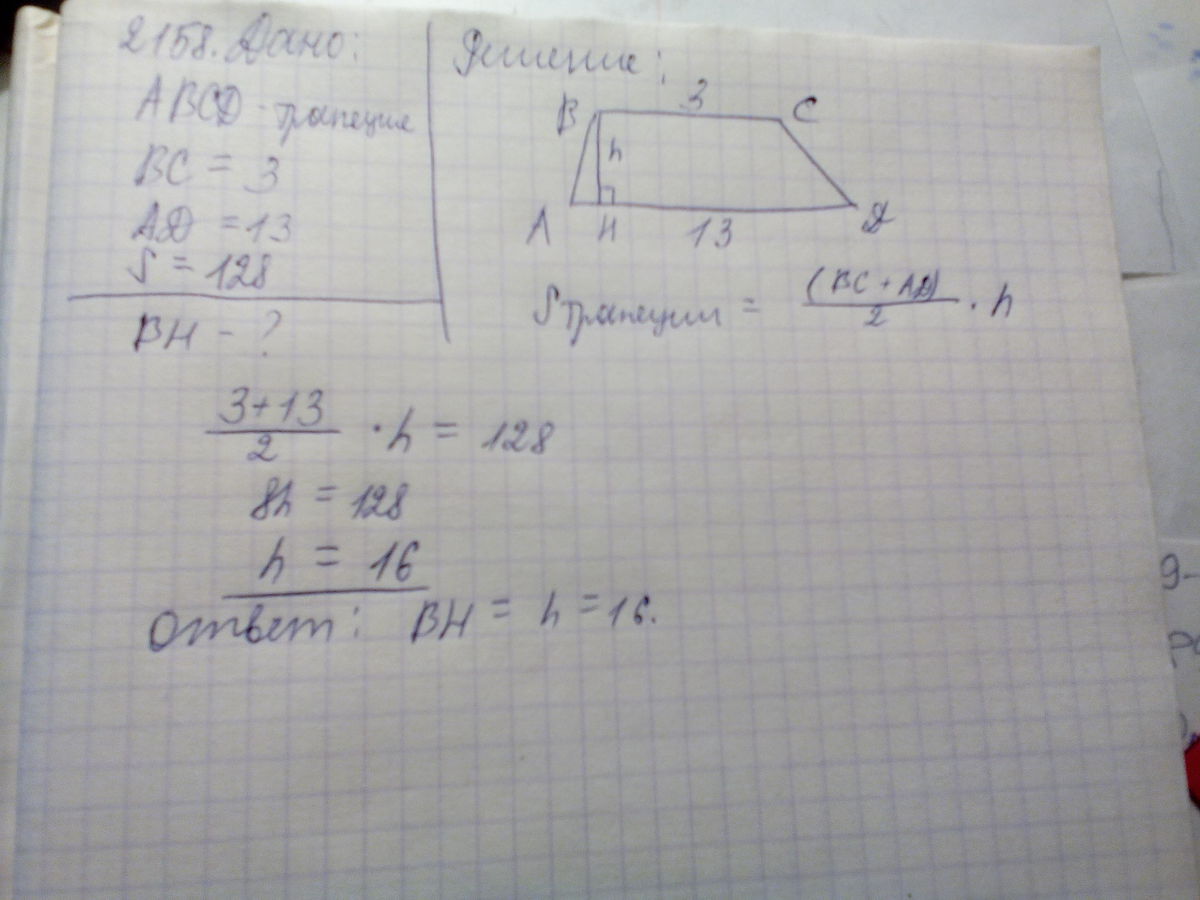 2158. Дано:
ABCD - трапеция
BC = 3
AD = 13
S = 128
BH - ?
Решение:
B 3 C
h
A H 13 D
S трапеции = (BC + AD) / 2 · h
3+13 / 2 · h = 128
8h = 128
h = 16
Ответ: BH = h = 16.
9-